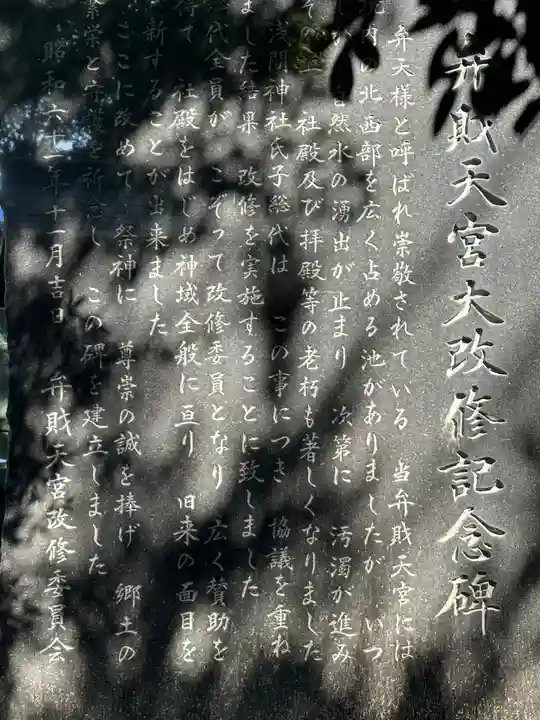 弁財天宮大改修記念碑
弁天様と呼ばれ崇敬されている 当弁財天宮には
内の北西部を広く占める池がありましたが いつ
しか 自然水の湧出が止まり 次第に 汚濁が進み
その上 社殿及び拝殿等の老朽も著しくなりました
浅間神社氏子総代は この事につき 協議を重ね
ました結果 改修を実施することに致しました
代全員が こぞって改修委員となり 広く賛助を
得て 社殿をはじめ神域全般に亘り 旧来の面目を
新することが出来ました
ここに改めて 祭神に 尊崇の誠を捧げ 郷土の
繁栄と安護を祈念し この碑を建立しました
昭和六十一年十一月吉日 弁財天宮改修委員会